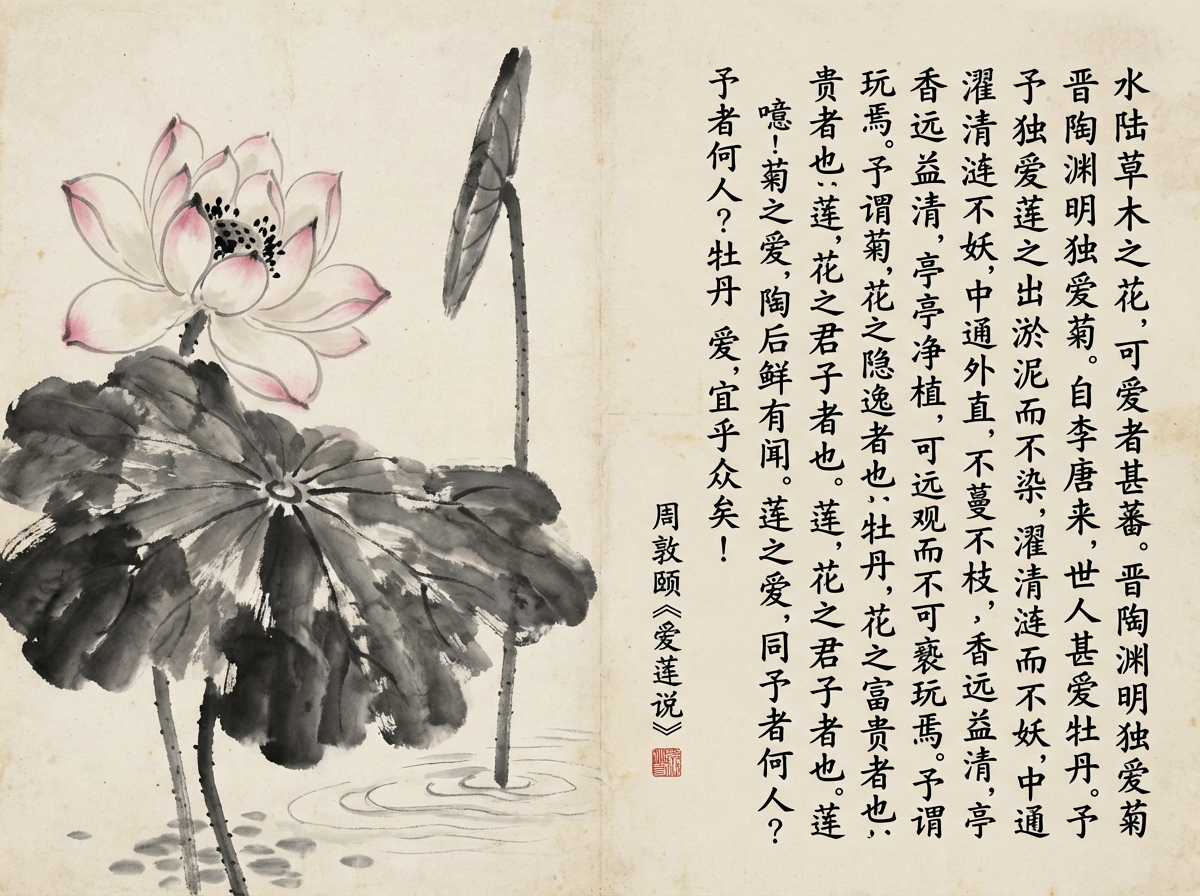 水陆草木之花，可爱者甚蕃。晋陶渊明独爱菊
晋陶渊明独爱菊。自李唐来，世人甚爱牡丹。予
予独爱莲之出淤泥而不染，濯清涟而不妖，中通
濯清涟不妖，中通外直，不蔓不枝，，香远益清，亭
香远益清，亭亭净植，可远观而不可亵玩焉。予谓
玩焉。予谓菊，花之隐逸者也；牡丹，花之富贵者也；
贵者也；莲，花之君子者也。莲，花之君子者也。莲
噫！菊之爱，陶后鲜有闻。莲之爱，同予者何人？
予者何人？牡丹 爱，宜乎众矣！
周敦颐《爱莲说》